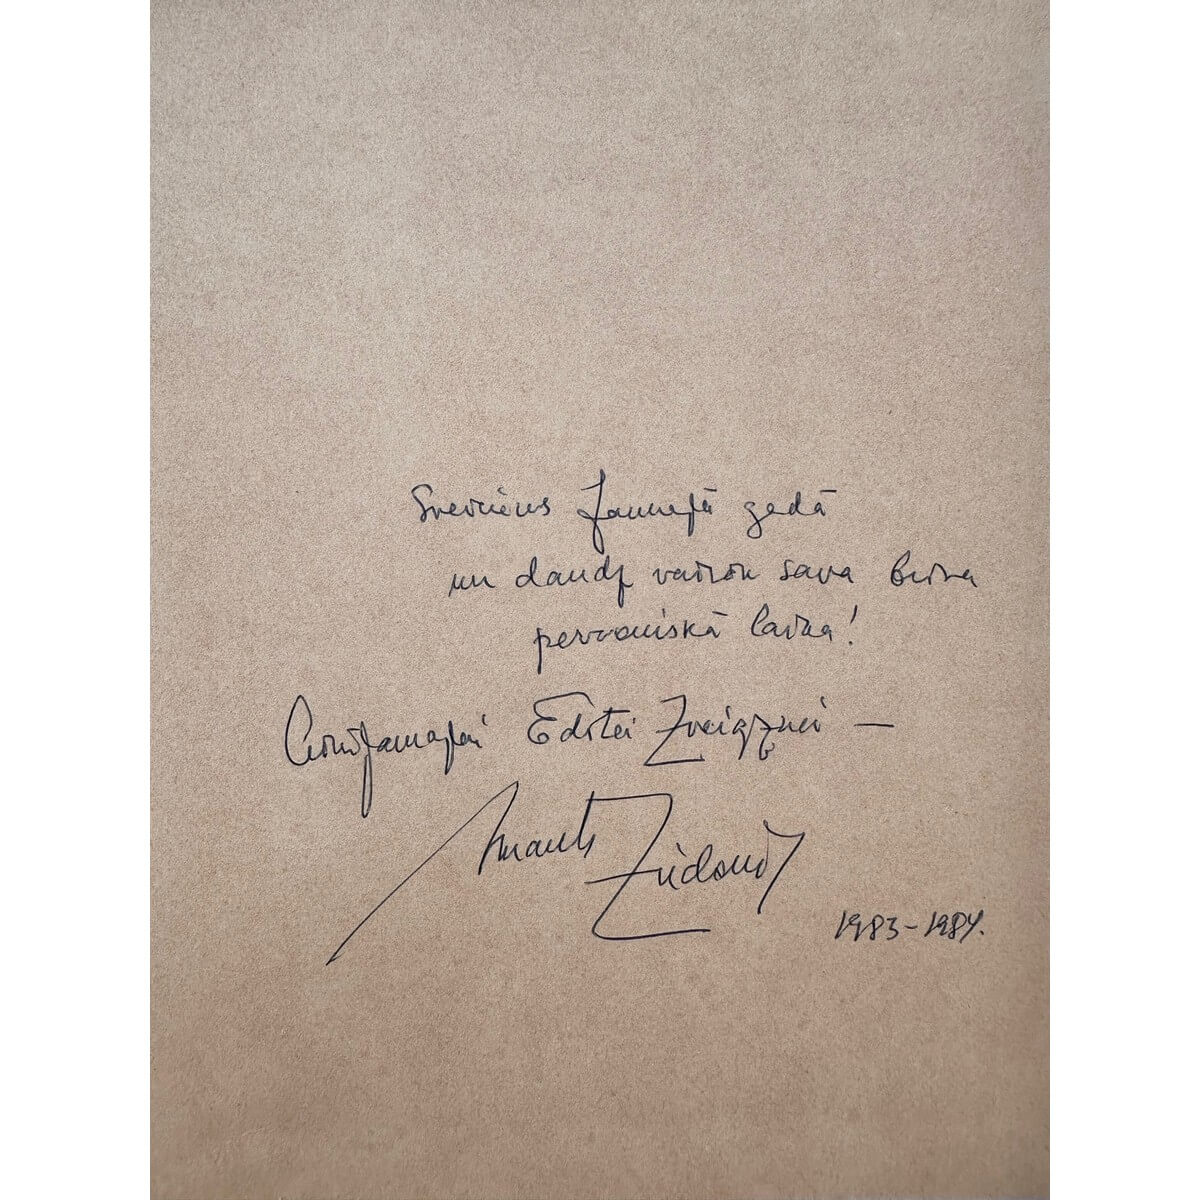 Sveiciens Jaunajā gadā
un daudz vairāk sava brīva
personiskā laika!
Cienījamajai Editei Zvaigznei —
Imants Ziedonis
1983-1984.